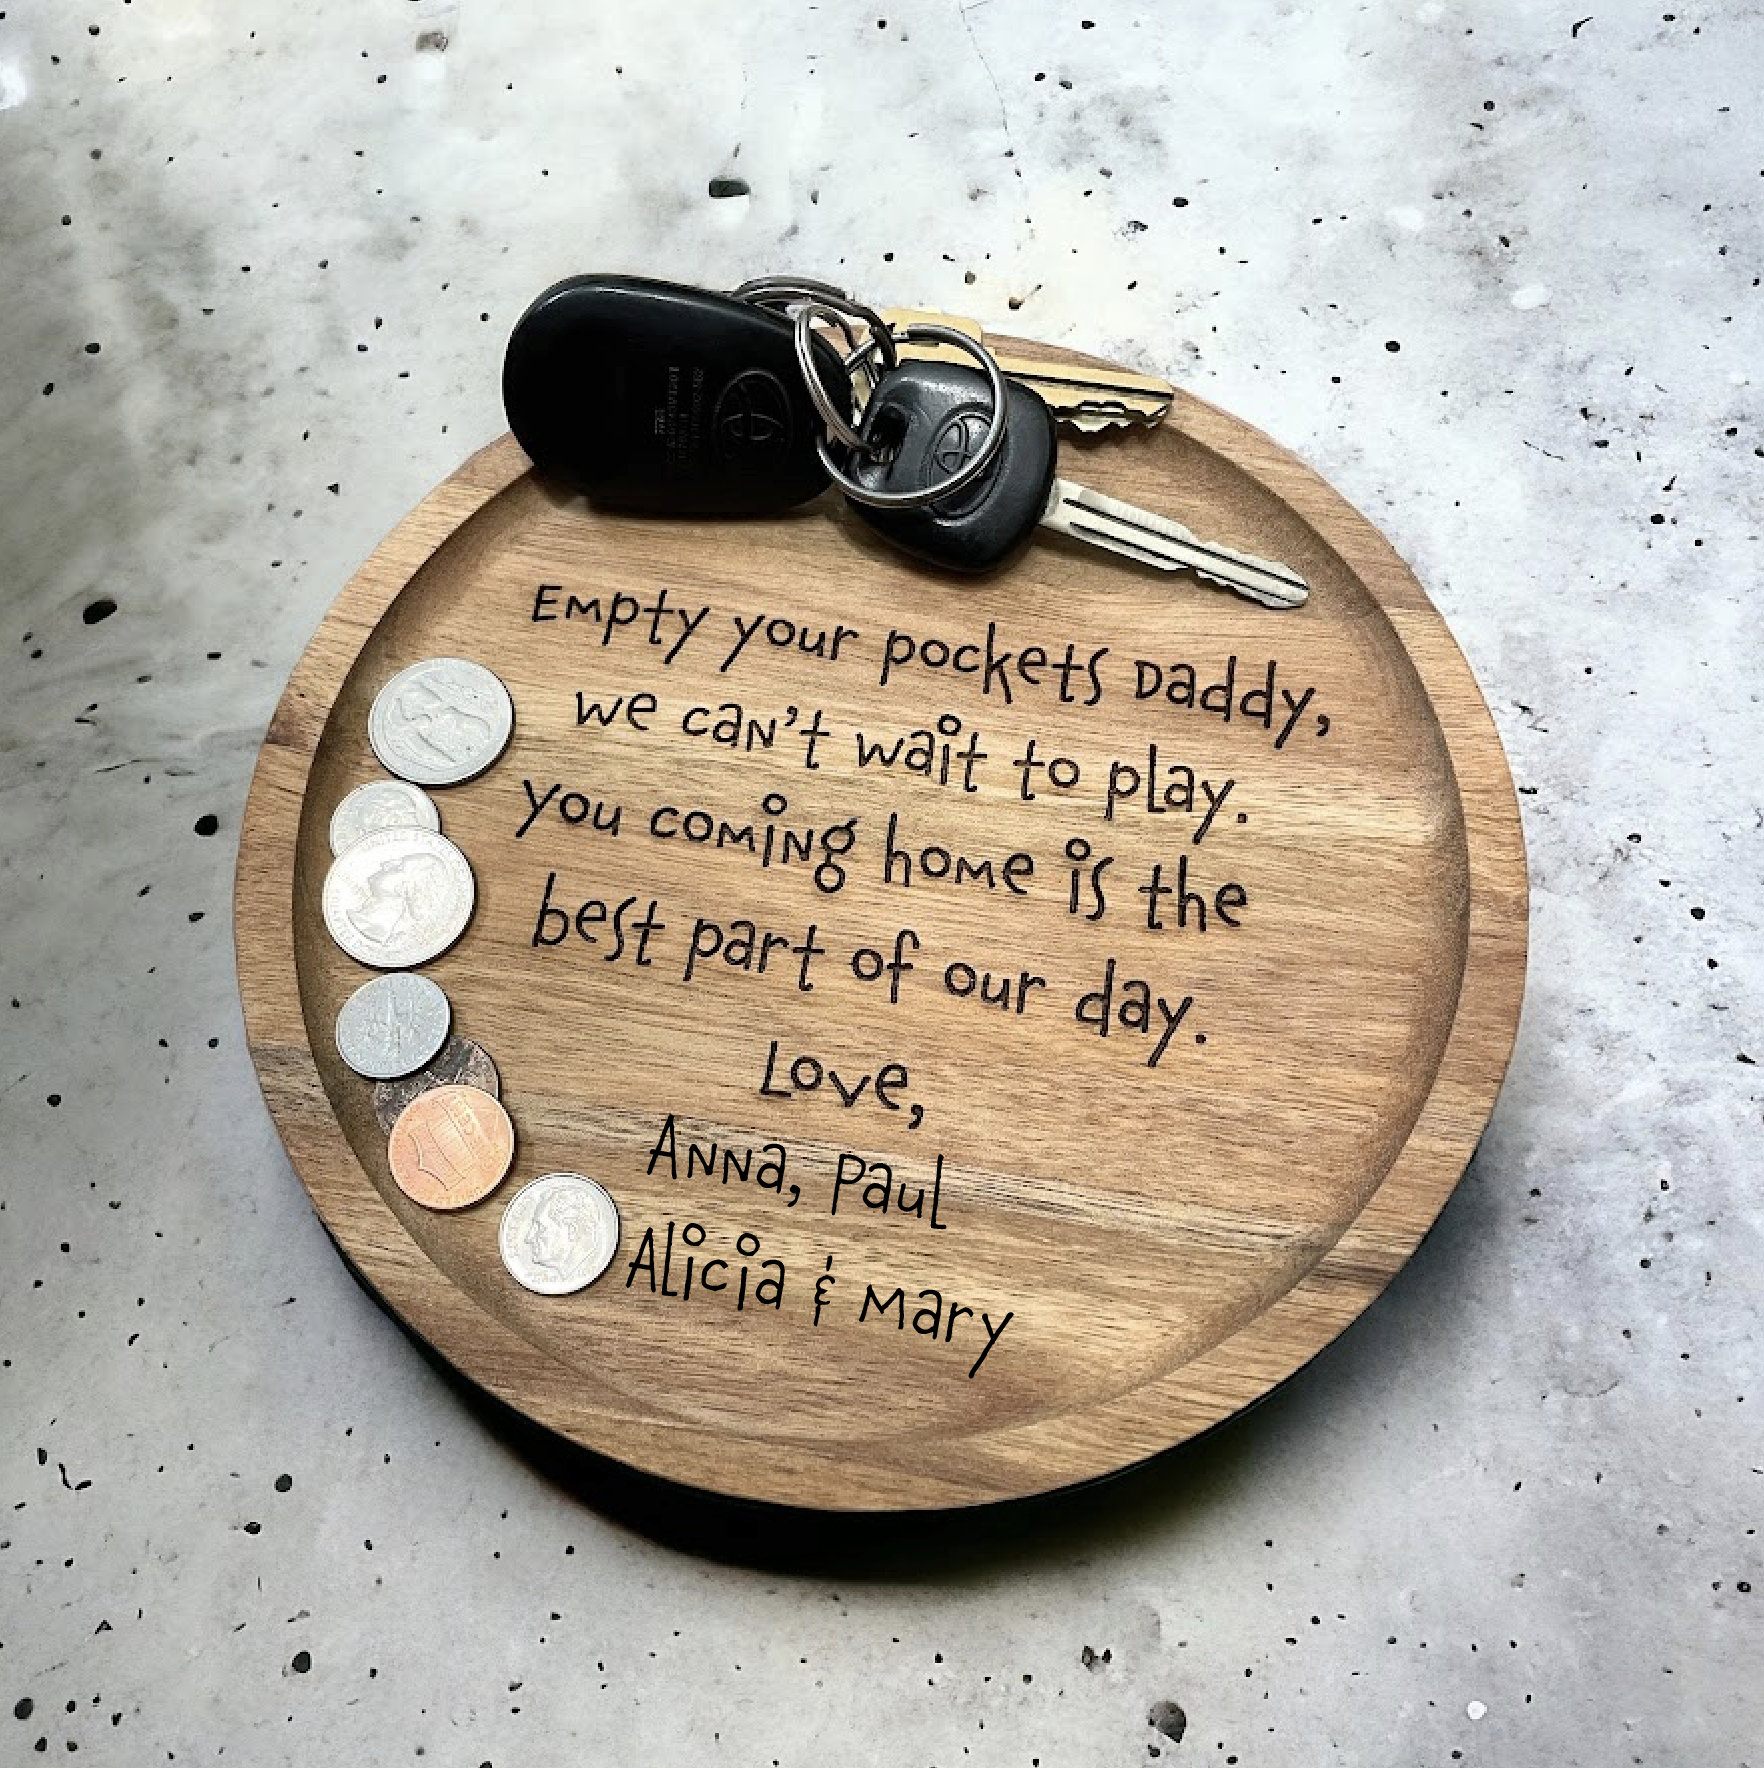 Empty your pockets Daddy,
we can't wait to play.
you coming home is the
best part of our day.
Love,
Anna, Paul
Alicia & Mary